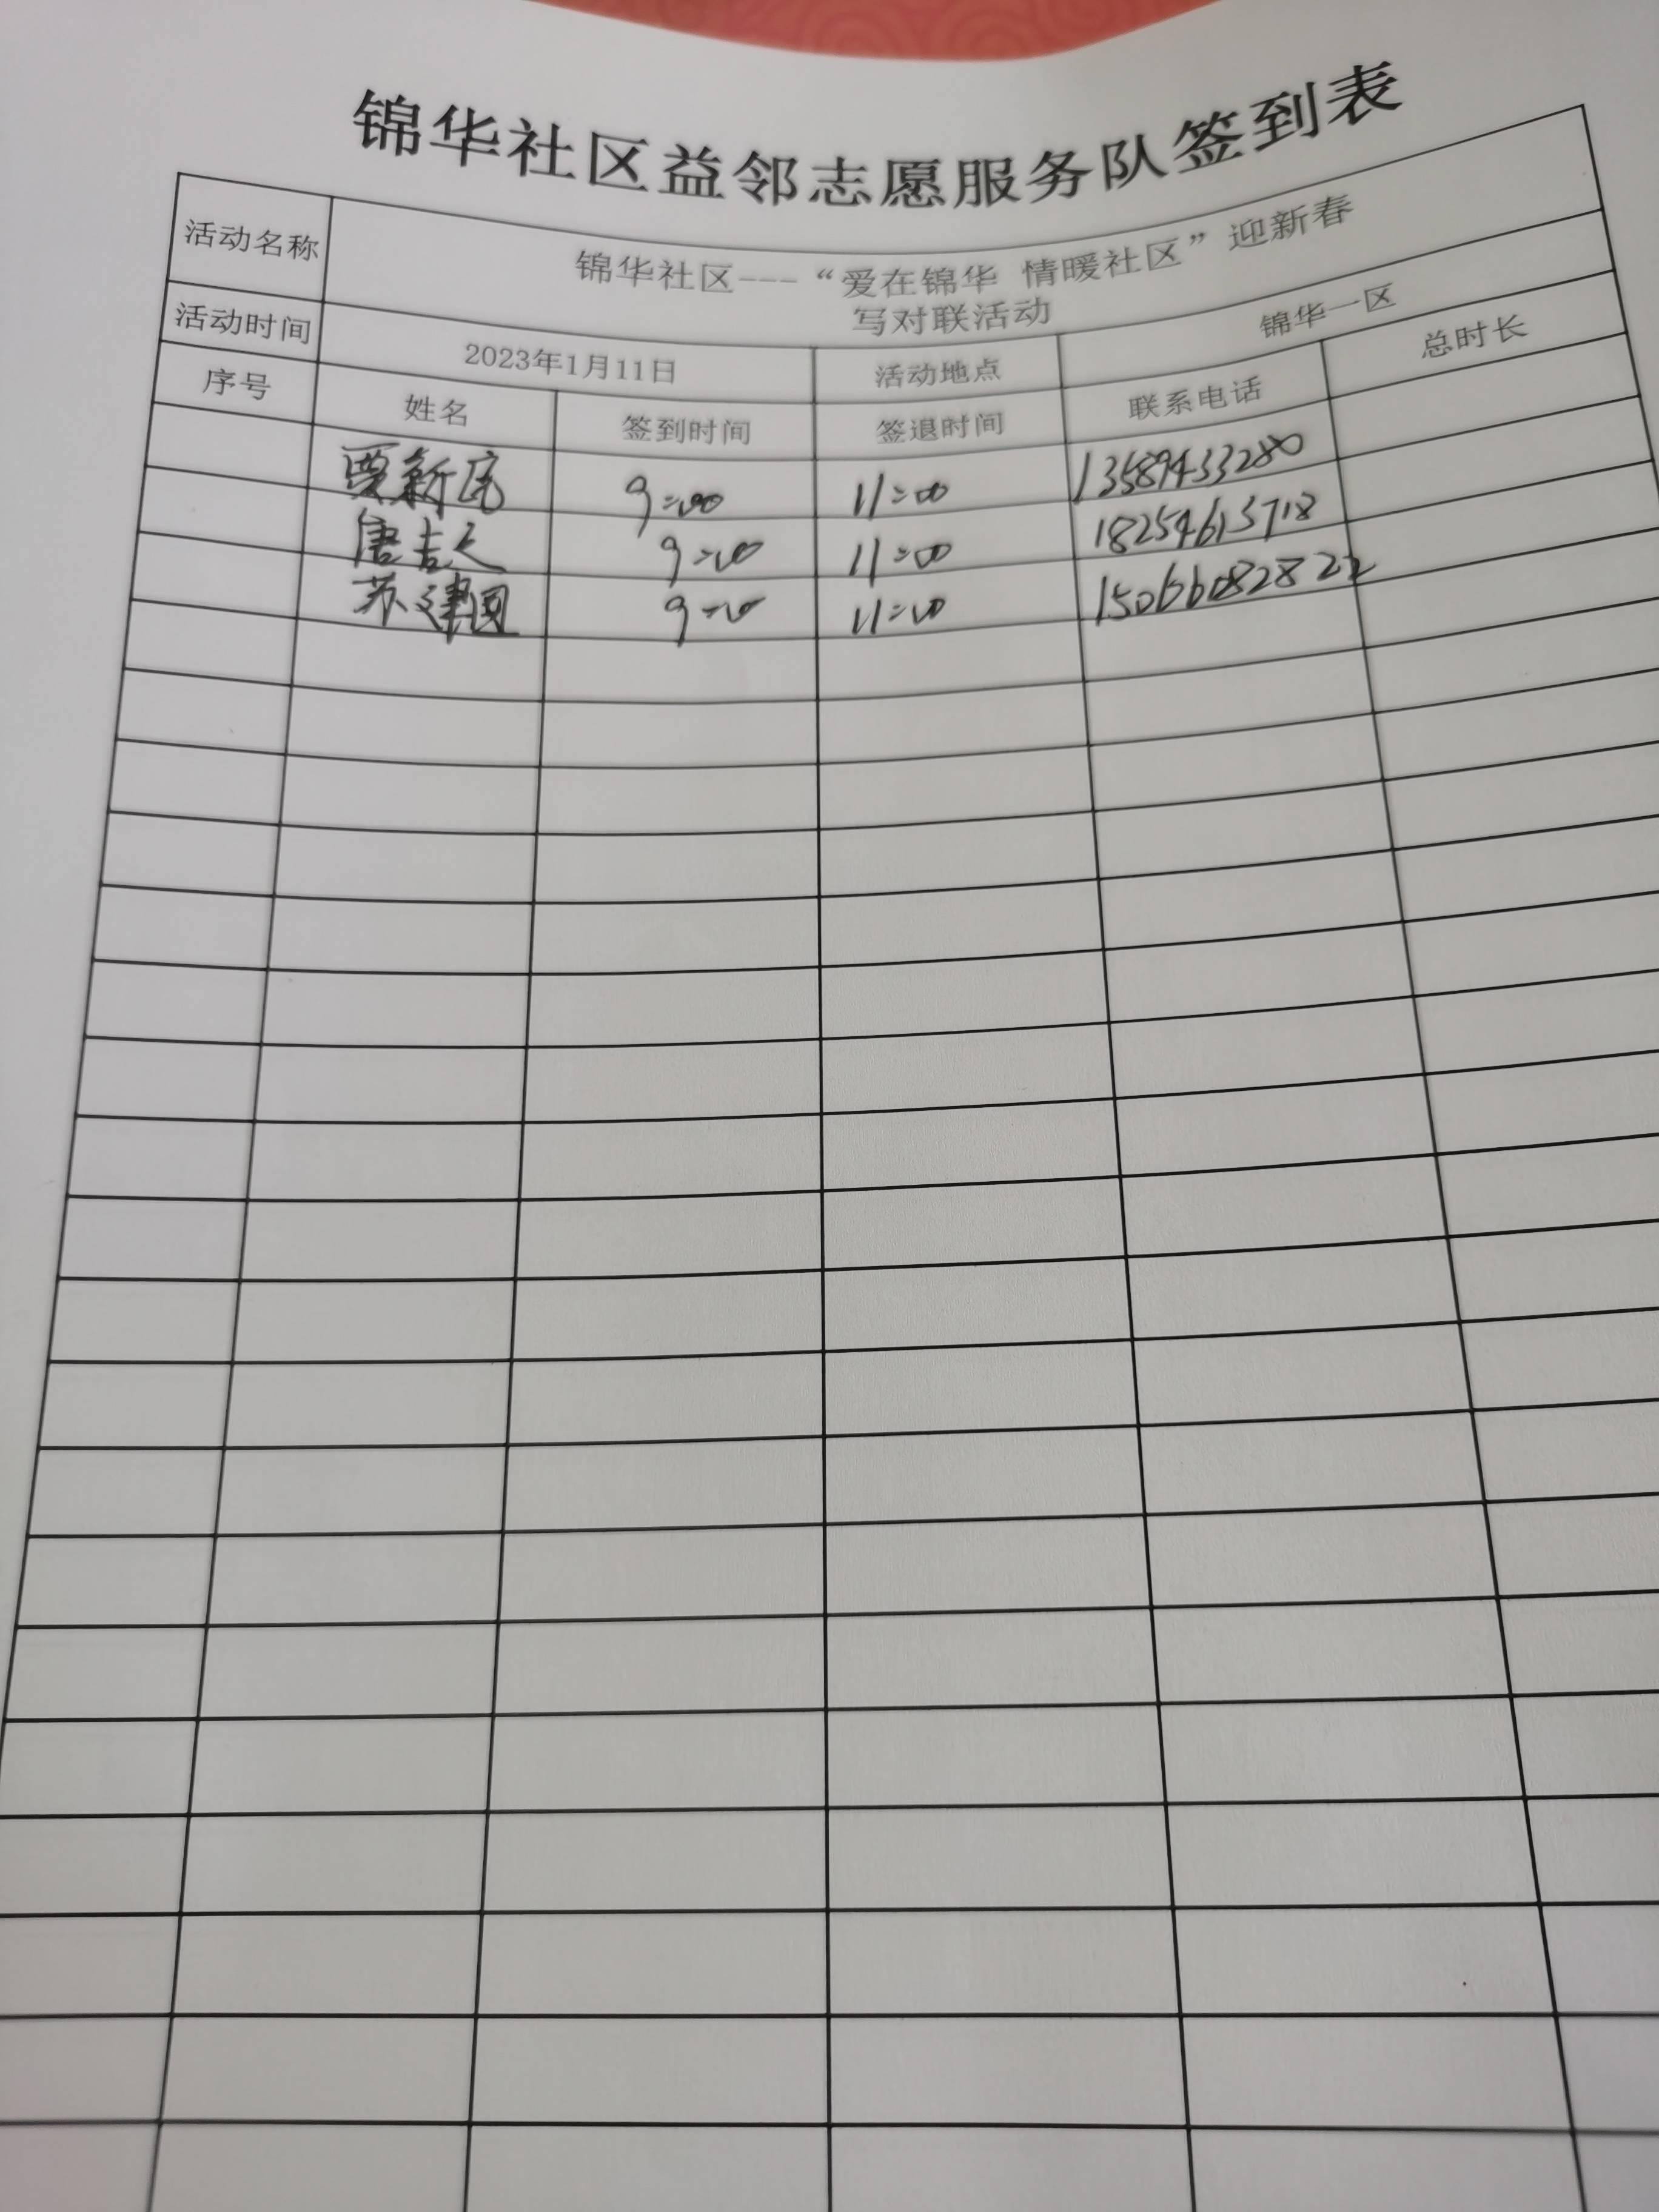 锦华社区益邻志愿服务队签到表
活动名称 锦华社区---“爱在锦华 情暖社区”迎新春
写对联活动
活动时间 2023年1月11日 活动地点 锦华一区
序号 姓名 签到时间 签退时间 联系电话 总时长
贾新 9:00 11:00 13589433280
唐吉 9:00 11:00 18254613718
苏建国 9:00 11:00 15066082822